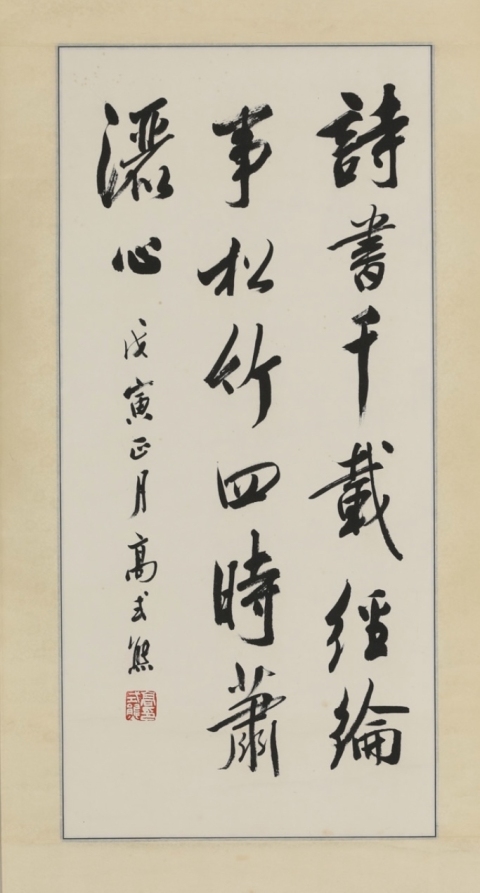 詩書千載經綸
事松竹四時蕭
灑心
戊寅正月高式熊